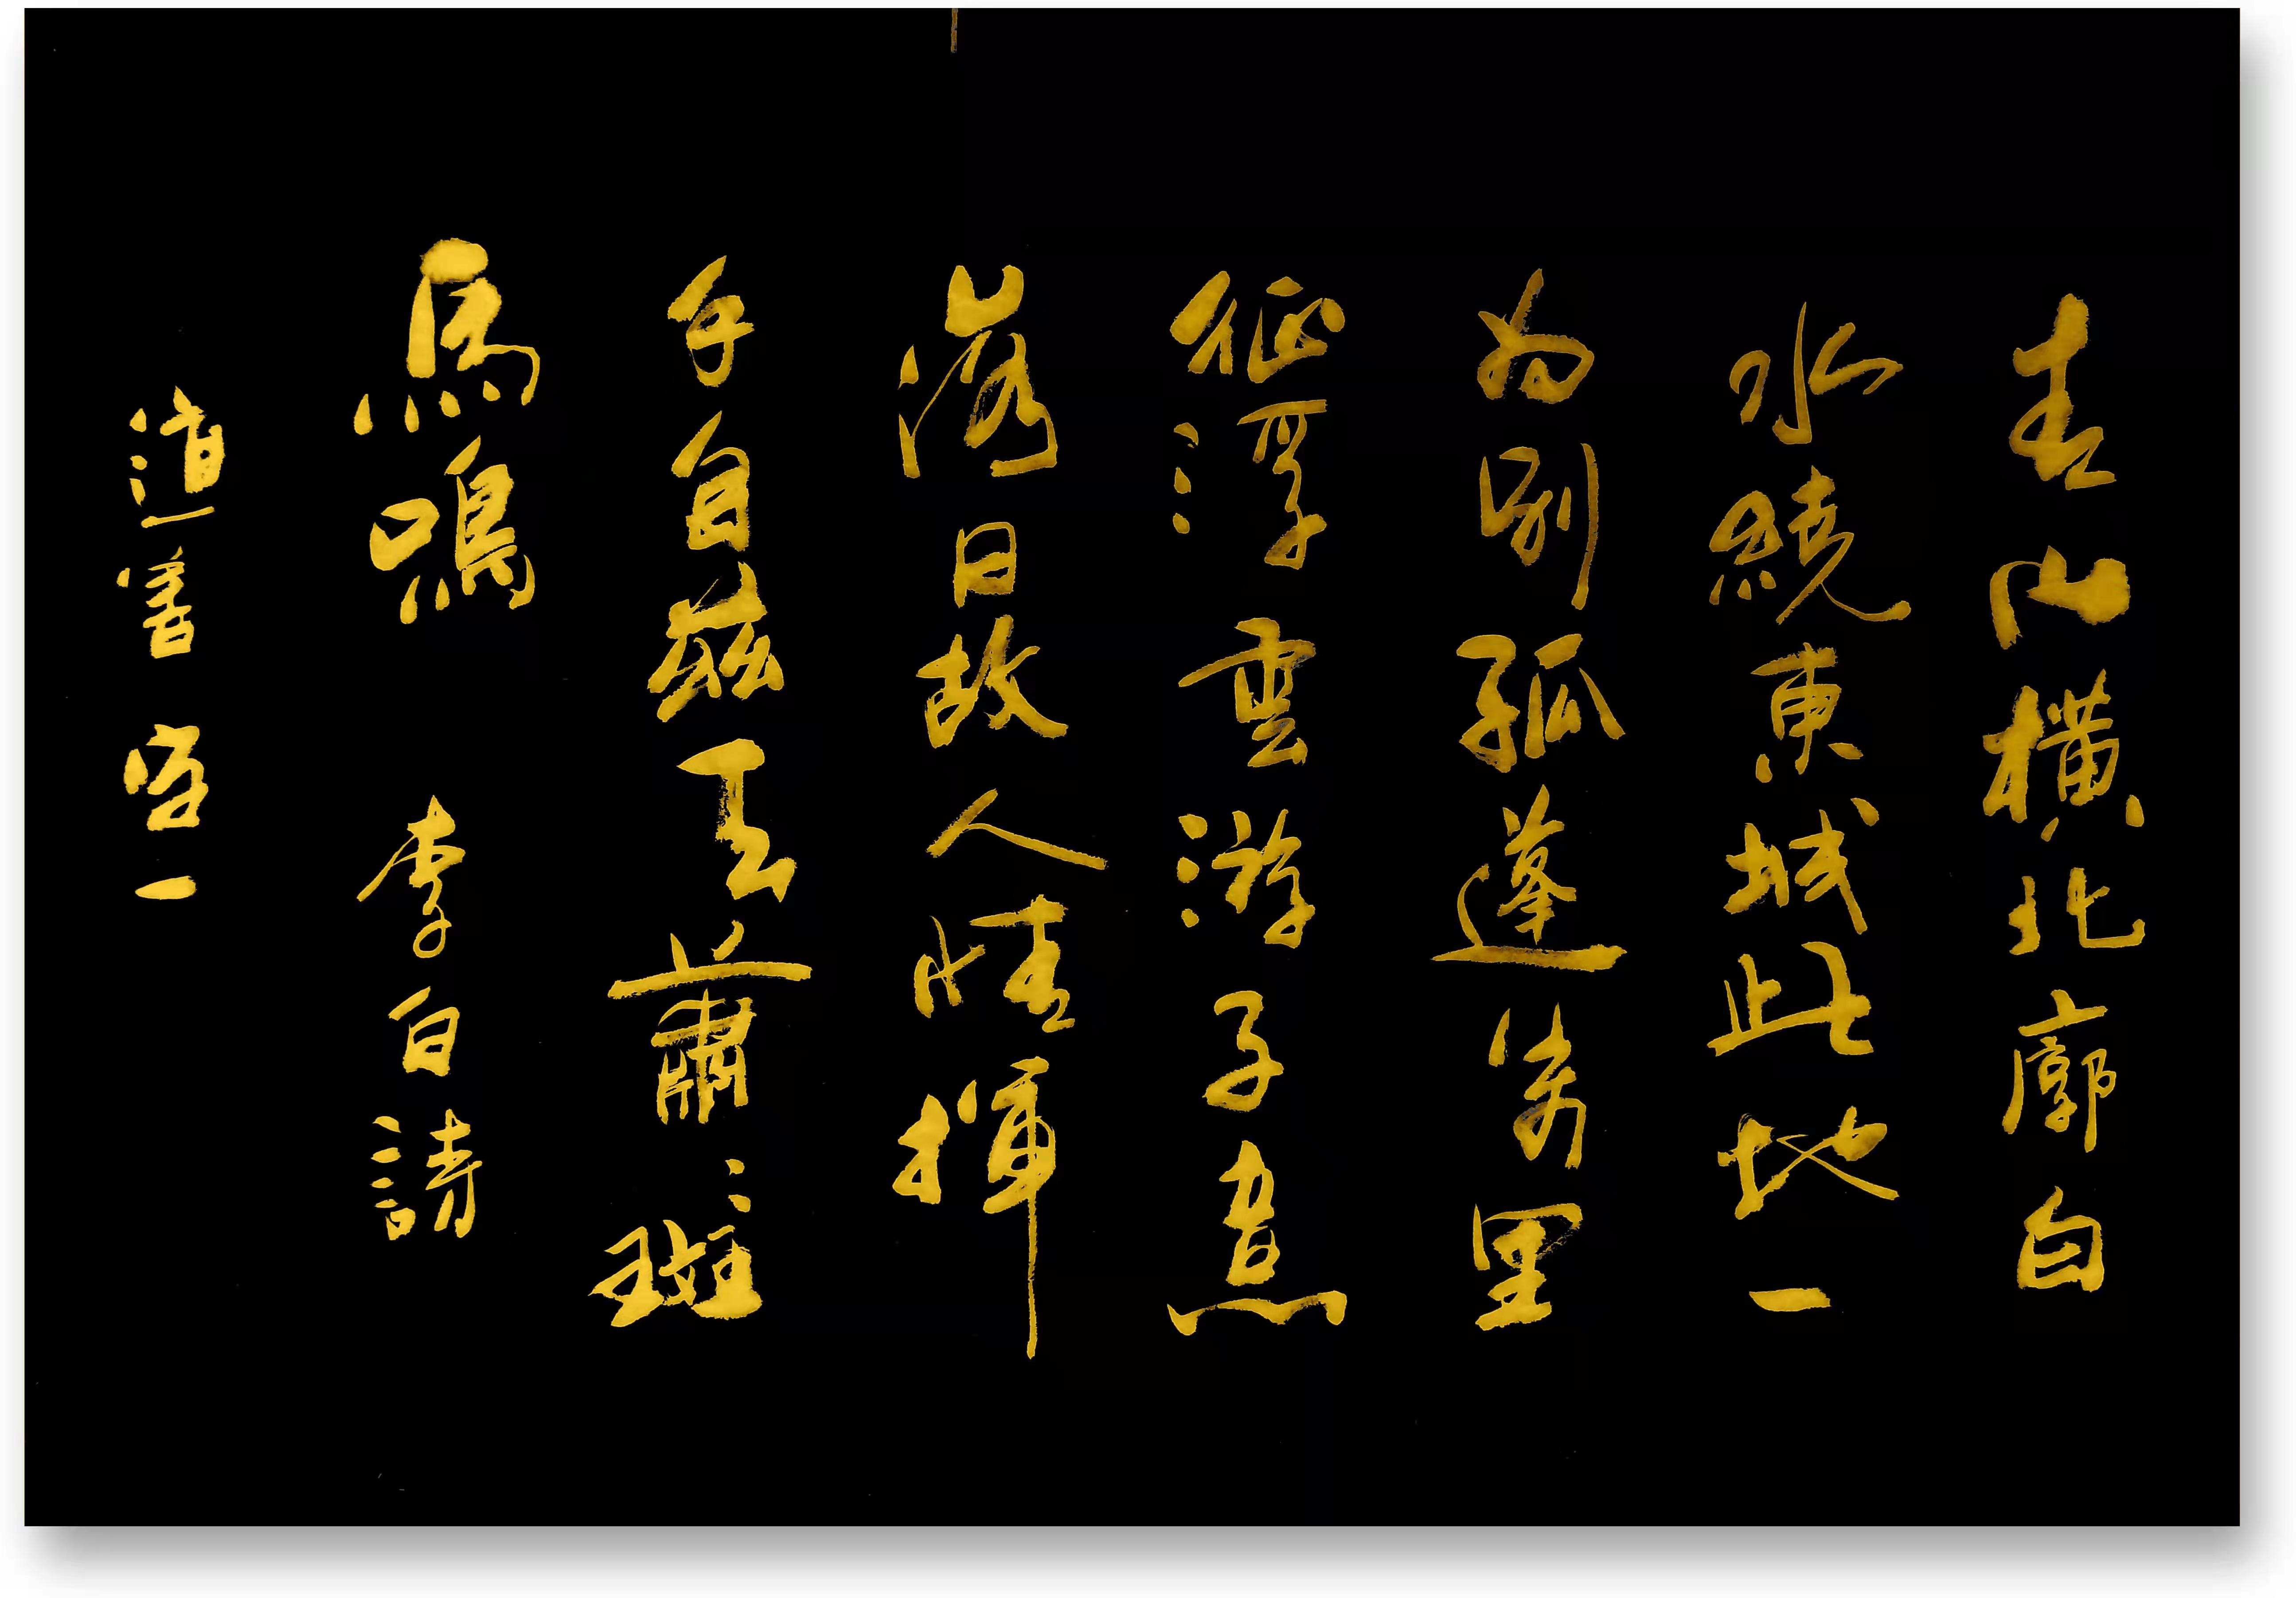 青山橫北廓白
水繞東城此地一
為別孤蓬萬里
征浮雲游子意
落日故人情揮
手自茲去蕭〻班
馬鳴 李白詩
道善 一